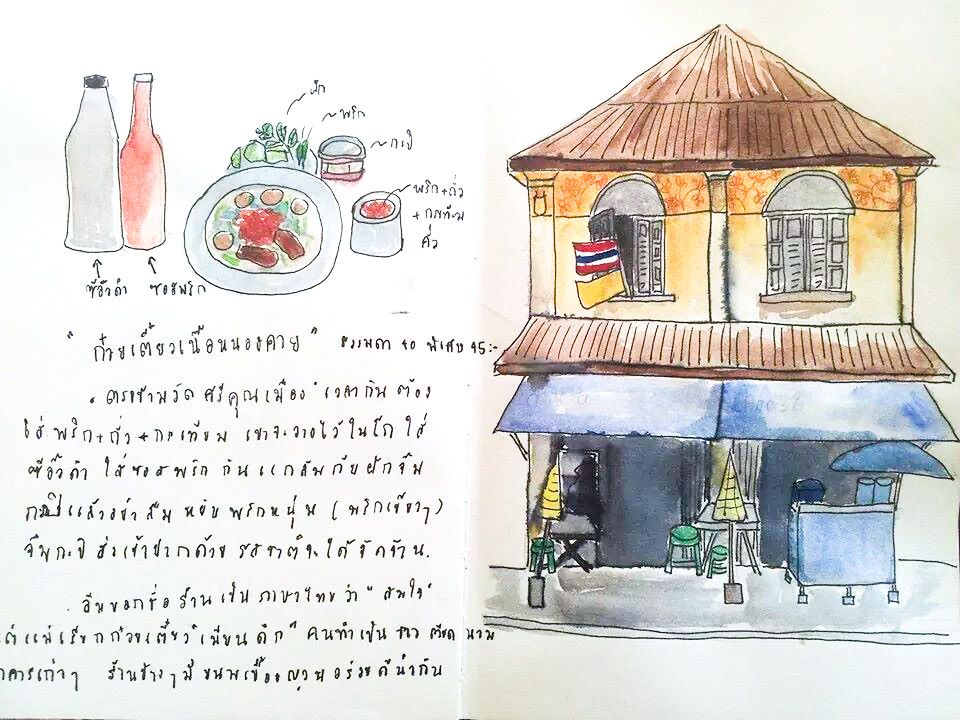 ผัก
พริก
กะปิ
พริก+ถั่ว
+กระเทียม
คั่ว
ซีอิ๊วดำ ซอสพริก
"ก๋วยเตี๋ยวเนื้อหนองคาย" ธรรมดา 40 พิเศษ 45:-
ตรงข้ามวัดศรีคุณเมือง เวลากิน ต้อง
ใส่ พริก+ถั่ว+กระเทียม เขาจะวางไว้ในโถ ใส่
ซีอิ๊วดำ ใส่ซอสพริก กินแกล้มกับผักจิ้ม
กะปิ แล้วอย่าลืม หยิบ พริกหนุ่ม (พริกเขียวๆ)
จิ้มกะปิ ส่งเข้าปากด้วย รสชาติจะได้จัดจ้าน.
ชื่อร้านเป็นภาษาไทยว่า "สมใจ"
แต่แม่เรียกก๋วยเตี๋ยว" คนทำเป็น ชาว เวียดนาม
อาคารเก่าๆ ร้านข้างๆ มี ขนมเบื้องญวน อร่อย